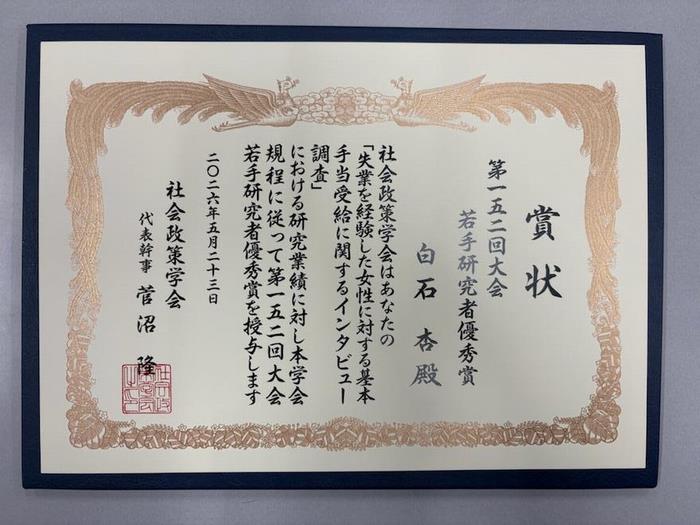 賞状
第一五二回大会
若手研究者優秀賞
白石 杏 殿
社会政策学会はあなたの
「失業を経験した女性に対する基本
手当受給に関するインタビュー
調査」
における研究業績に対し本学会
規程に従って第一五二回大会
若手研究者優秀賞を授与します
二〇二六年五月二十三日
社会政策学会
代表幹事 菅沼 隆